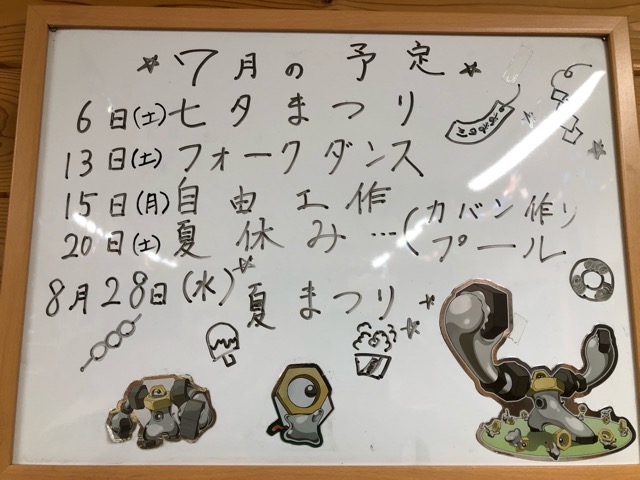 ☆7月の予定☆
6日(土)七夕まつり
13日(土)フォークダンス
15日(月)自由工作
20日(土)夏休み…(カバン作り
プール
8月28日(水)夏まつり